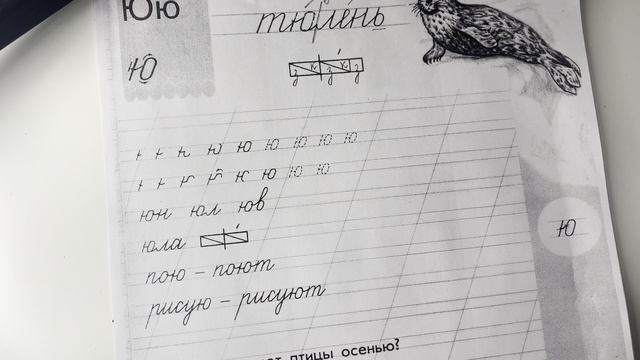 Юю
тюлень
Ю
ю ю ю ю ю
ю ю ю ю
юн юл юв
юла
Ю
пою – поют
рисую – рисуют
птицы осенью?